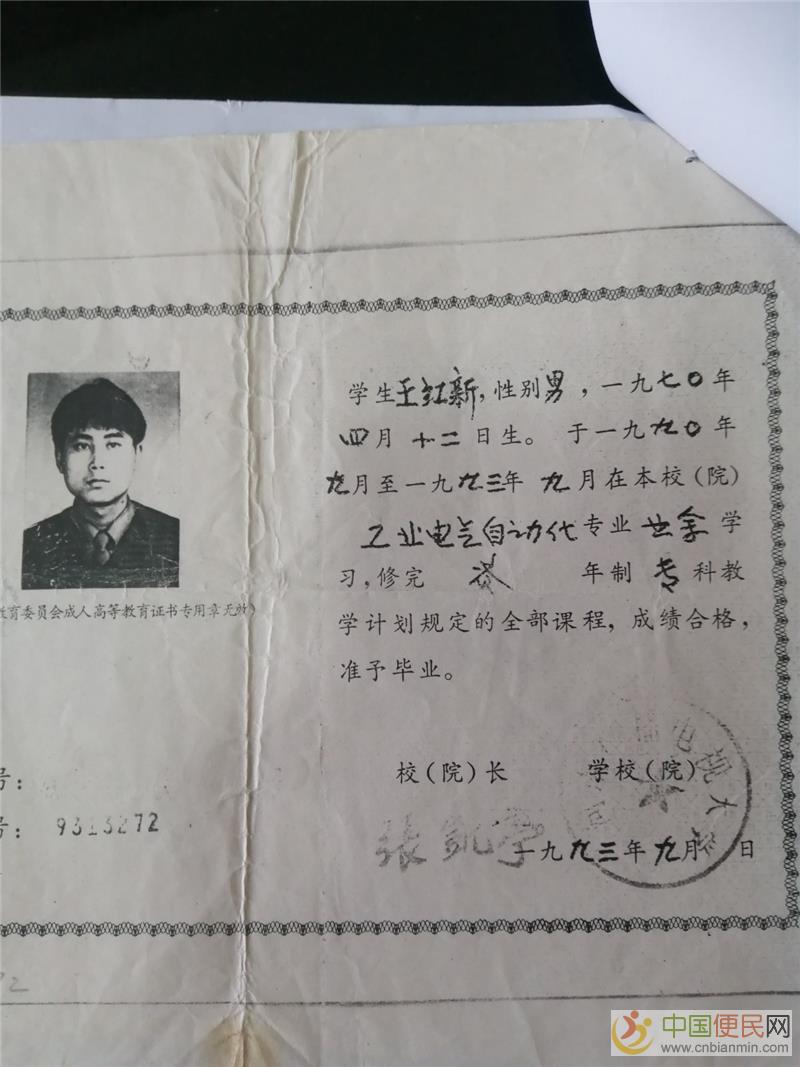 学生王红新，性别男，一九七〇年
四月十二日生。于一九九〇年
九月至一九九三年九月在本校（院）
工业电气自动代专业业余学
习，修完 年制专科教
学计划规定的全部课程，成绩合格，
准予毕业。
校（院）长 学校（院）
张凯学
一九九三年九月 日
电视大
教育委员会成人高等教育证书专用章无效）
号：
号： 9313272
中国便民网
www.cnbianmin.com